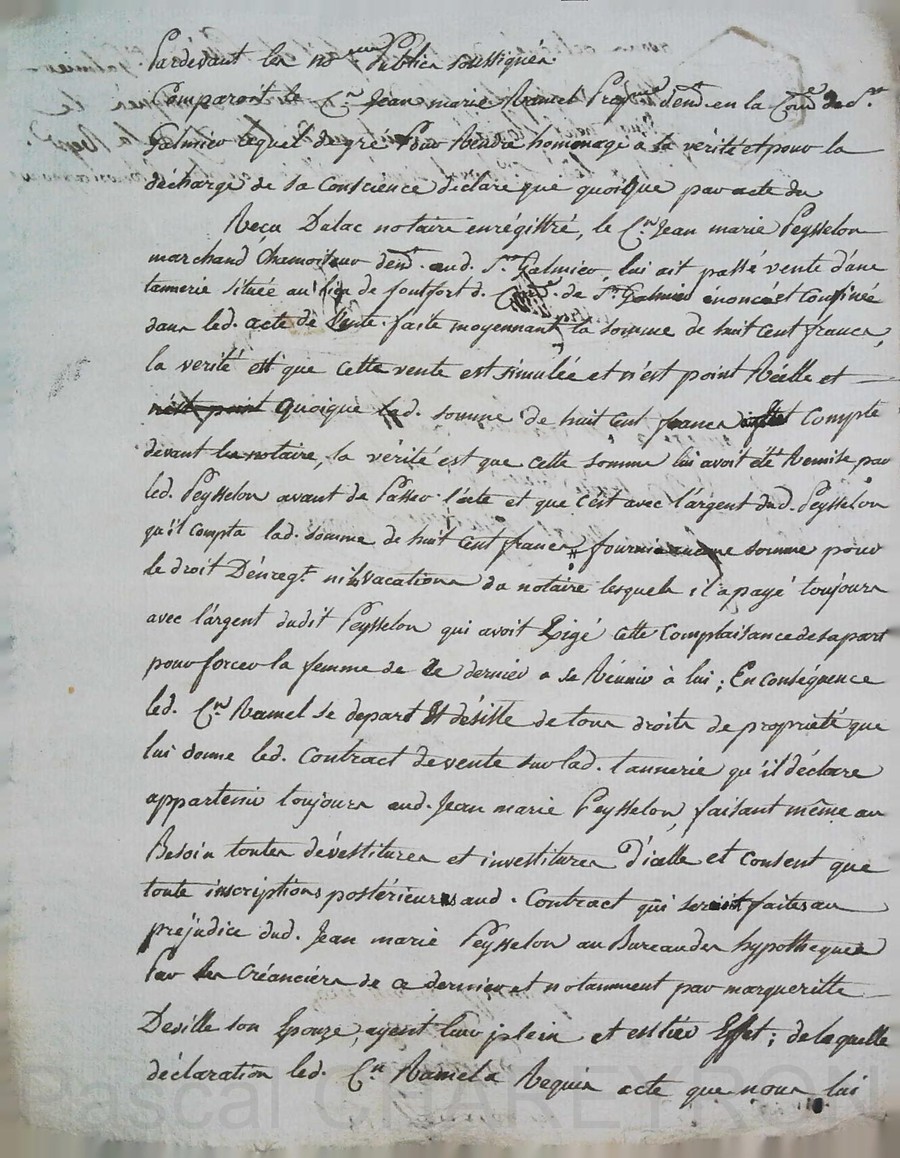 Pardevant les no.res Publics soussignés.
Comparoit le C.en Jean marie Ramel Prop.re dem.t en la Com.e de S.t
Galmier lequel de gré Pour Rendre hommage a la vérité et pour la
décharge de sa Conscience déclare que quoique par acte du
Reçu Dalac notaire enrégistré, le C.en Jean marie Peysselon
marchand Chamoiseur dem.t aud. S.t Galmier, lui ait passé vente d'une
tannerie située au lieu de fontfort d. Com.e de S.t Galmier énoncé et confinée
dans led. acte de Vente faite moyennant la somme de huit Cent francs,
la verité est que cette vente est simulée et n'est point Réelle et
n'est point quoique lad. somme de huit Cent francs Compté
devant les notaire, la vérité est que cette somme lui avoit été Remise par
led. Peysselon avant de Passer l'acte et que c'est avec l'argent dud. Peysselon
qu'il compta lad. somme de huit Cent francs, somme pour
le droit D'enreg.t ni vacations du notaire lesquels il a payé toujours
avec l'argent dudit Peysselon qui avoit Exigé cette Complaisance de sa part
pour forcer la femme de Ce dernier a se Réunir à lui ; En conséquence
led. C.en Ramel se depart Et désiste de tous droits de propriété que
lui donne led. Contract de vente sur lad. tannerie qu'il déclare
appartenir toujours aud. Jean marie Peysselon, faisant même au
Besoin toutes dévestitures et investitures d'icelle et Consent que
toute inscriptions postérieures aud. Contract qui seroit faites au
préjudice dud. Jean marie Peysselon au Bureau des hypotheques
Par les Créanciers de ce dernier et notamment par margueritte
Deville son Epouze, ayent leur plein et entier Effet ; de laquelle
déclaration led. C.en Ramel a Requis acte que nous lui
Pascal CHAREYRON